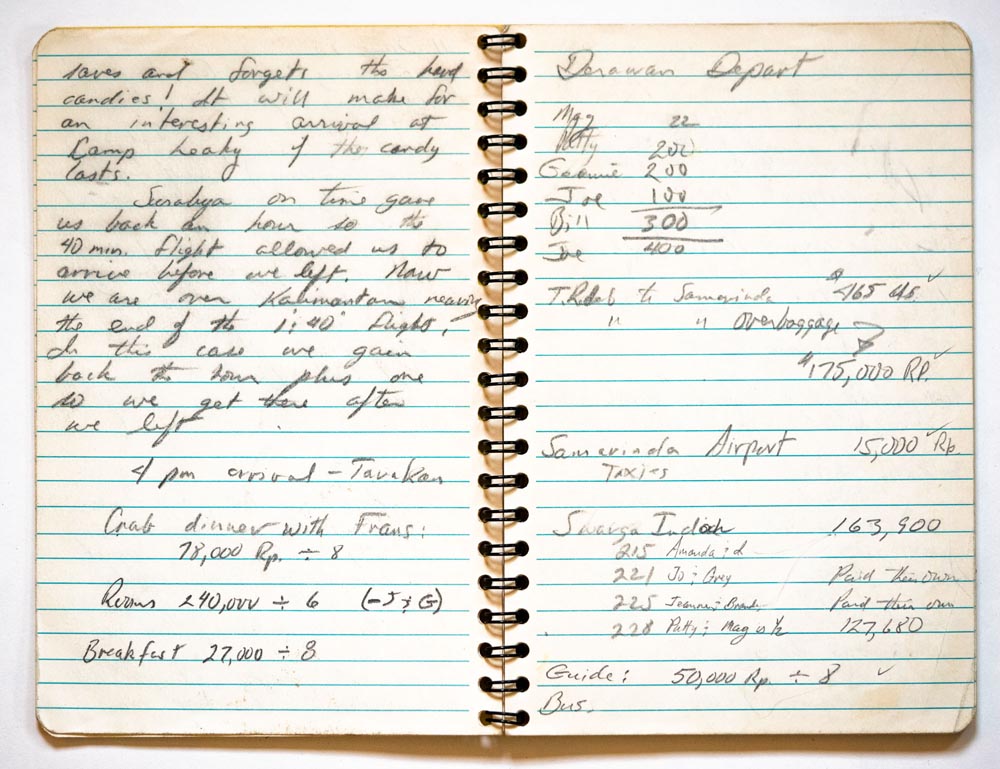 saves and forgets the hard
candies! It will make for
an interesting arrival at
Camp Leaky if the candy
lasts.
Surabya on time gave
us back an hour so the
40 min. flight allowed us to
arrive before we left. Now
we are over Kalimantan nearing
the end of the 1:40 flight,
In this case we gain
back the hour plus one
so we get there after
we left.
4 pm arrival - Tarakan
Crab dinner with Frans:
78,000 Rp. ÷ 8
Rooms 240,000 ÷ 6 (-J & G)
Breakfast 27,000 ÷ 8
Derawan Depart
Mag 22
Patty 200
Geannie 200
Joe 100
Bill 300
Joe 400
to Samarinda $465 US.
" " overbaggage
175,000 RP.
Samarinda Airport 15,000 Rp.
Taxies
Swarga Indah 163,900
215 Amanda & I
221 Jo & Greg Paid their own
225 Paid their own
228 Patty & Mag is ½ 127,680
Guide: 50,000 Rp. ÷ 8
Bus.